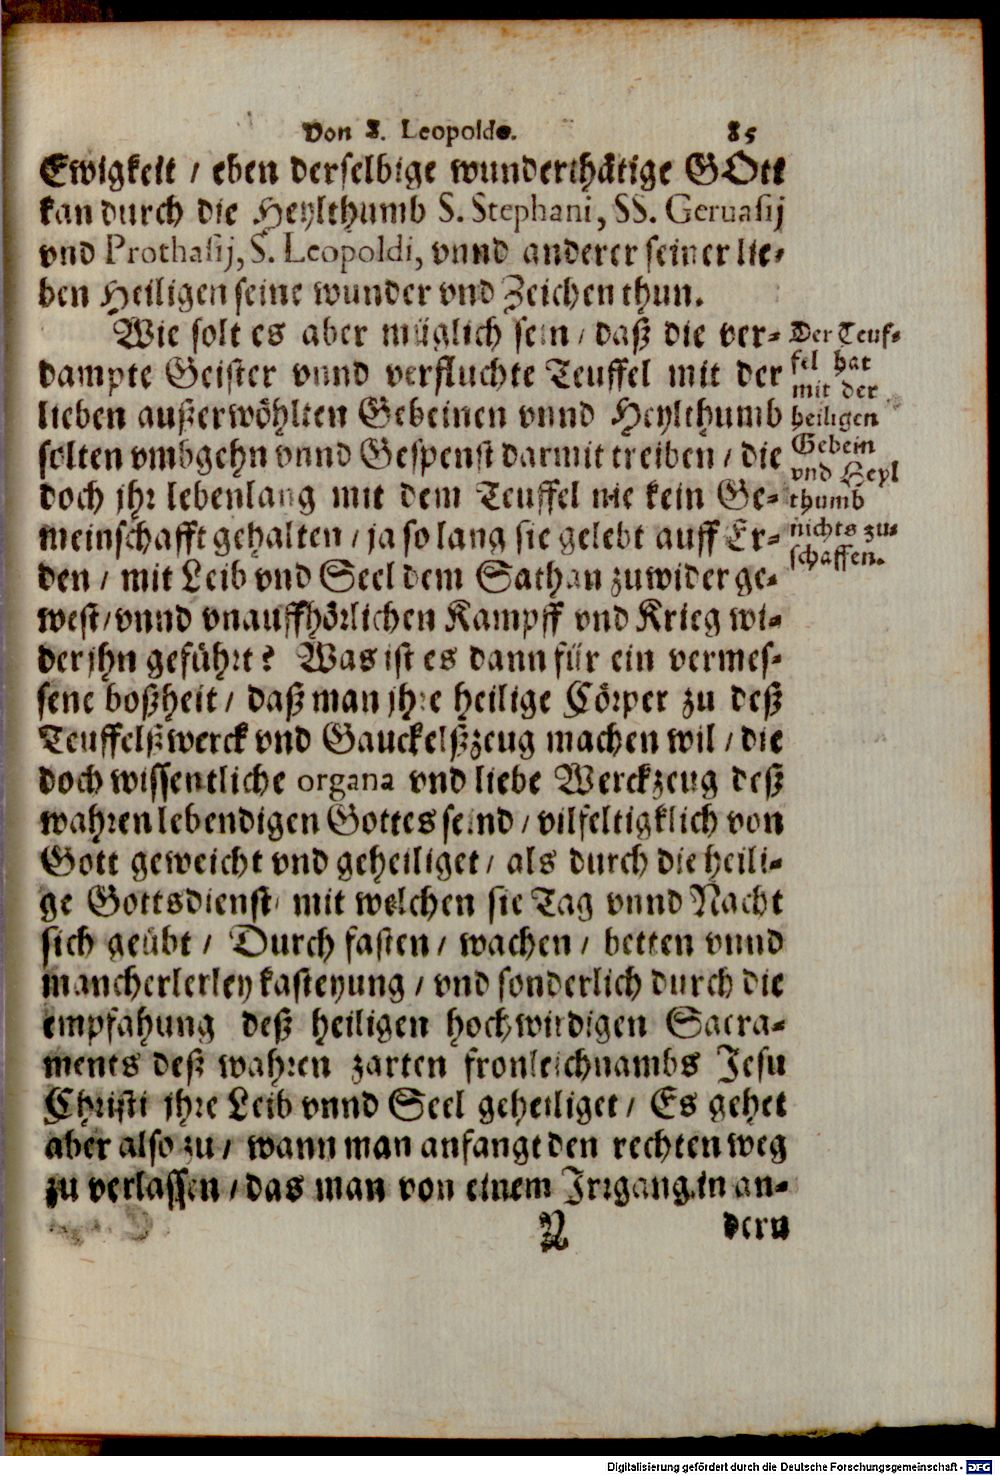 Von S. Leopoldo. 85
Ewigkeit / eben derselbige wunderthätige GOtt
kan durch die Heylthumb S. Stephani, SS. Geruasij
vnd Prothasij, S. Leopoldi, vnnd anderer seiner lie-
ben Heiligen seine wunder vnd Zeichen thun.
Wie solt es aber müglich sein / daß die ver-
dampte Geister vnnd verfluchte Teuffel mit der
lieben außerwöhlten Gebeinen vnnd Heylthumb
solten vmbgehn vnnd Gespenst darmit treiben / die
doch jhr lebenlang mit dem Teuffel nie kein Ge-
meinschafft gehalten / ja so lang sie gelebt auff Er-
den / mit Leib vnd Seel dem Sathan zuwider ge-
west / vnnd vnauffhörlichen Kampff vnd Krieg wi-
der jhn geführt? Was ist es dann für ein vermes-
sene boßheit / daß man jhre heilige Cörper zu deß
Teuffelßwerck vnd Gauckelßzeug machen wil / die
doch wissentliche organa vnd liebe Werckzeug deß
wahren lebendigen Gottes seind / vilfeltigklich von
Gott geweicht vnd geheiliget / als durch die heili-
ge Gottsdienst / mit welchen sie Tag vnnd Nacht
sich geübt / Durch fasten / wachen / betten vnnd
mancherlerley kasteyung / vnd sonderlich durch die
empfahung deß heiligen hochwirdigen Sacra-
ments deß wahren zarten fronleichnambs Jesu
Christi jhre Leib vnnd Seel geheiliget / Es gehet
aber also zu / wann man anfangt den rechten weg
zu verlassen / das man von einem Irrgang in an-
N dern
Der Teuf-
fel hat
mit der
heiligen
Gebein
vnd Heyl
thumb
nichts zu-
schaffen.
Digitalisierung gefördert durch die Deutsche Forschungsgemeinschaft - DFG